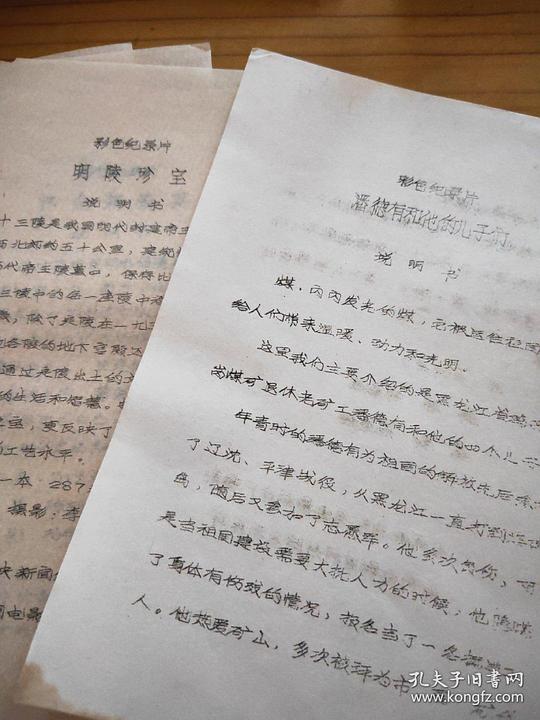 彩色纪录片
明陵珍宝
说明书
十三陵是我国明代封建帝王
西北郊约五十公里，建筑
代帝王陵墓中，保存比
三陵中的每一座陵中
除了定陵在一九五
各陵的地下宫殿
通过定陵出土的文
的生活和智慧。
宝，更反映了
的工艺水平。
一本 287
摄影：李
央新闻
电影
彩色纪录片
潘德有和他的儿子们
说明书
煤，闪闪发光的煤，它被运往祖国
给人们带来温暖、动力和光明。
这里我们主要介绍的是黑龙江省鹤
岗煤矿退休老矿工潘德有和他的四个儿子
年青时的潘德有为祖国的解放先后参
了辽沈、平津战役，从黑龙江一直打到海南
岛，随后又参加了志愿军。他多次负伤，可
是当祖国建设需要大批人力的时候，他隐瞒
了身体有伤残的情况，报名当了一名掘进
人。他热爱矿山，多次被评为市
孔夫子旧书网
kongfz.com